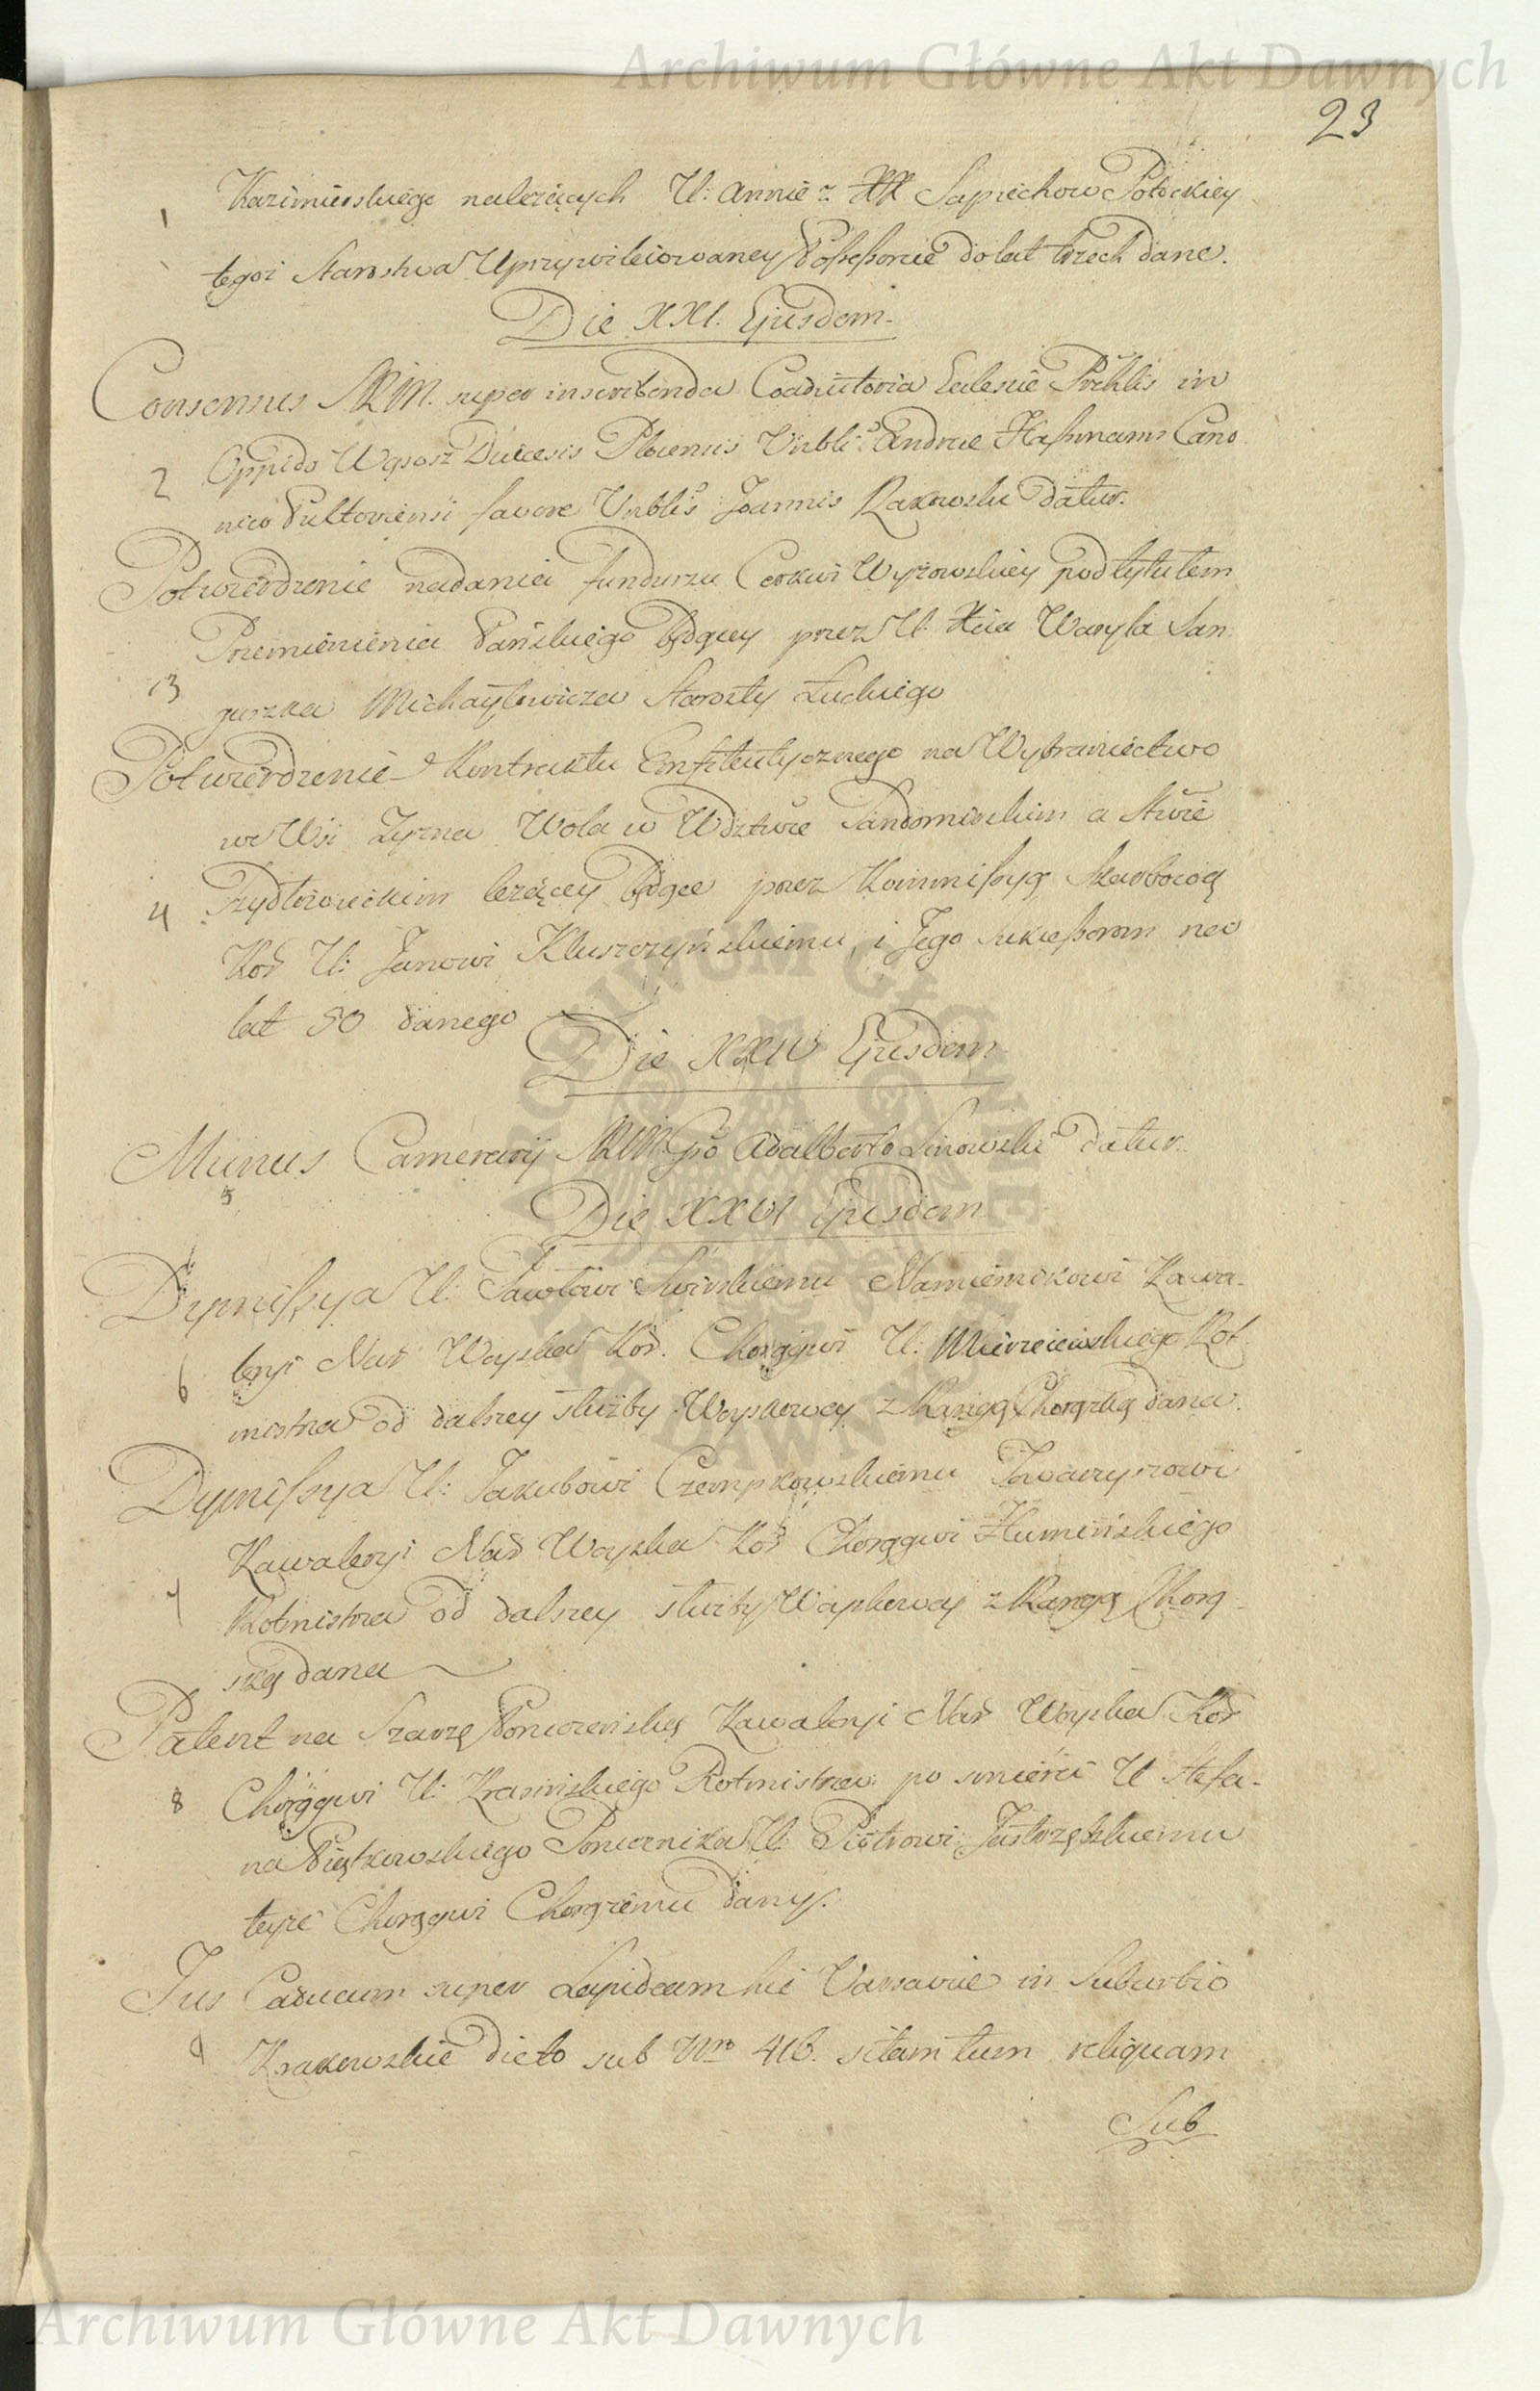 Archiwum Główne Akt Dawnych
23
1 Kazimierskiego należących U: Annie z XX Sapiechow Potockiey
tegoż Starostwa Uprzywileiowaney Posseſsorce do lat trzech dane.
Die XXI. Ejusdem.
Consensus SRM. super inscribenda Coadiutoria Eclesiæ Prchlis in
2 Oppido Wąsosz Diæcesis Plocensis Vnblis Andreæ Cano
nico Pultoviensi favore Vnblis Joannis Rakowski datur.
Potwierdzenie nadania funduszu Cerkwi Wyżowskiey pod tytułem
Przemienienia Pańskiego będącey przez U. Xcia Wasyla San
3 guszka Michayłowicza Starosty Łuckiego
Potwierdzenie Kontraktu Emfiteutycznego na Wybraniectwo
we Wsi Żyzna Wola w Wdztwie Sandomirskim a Stwie
4 Szydłowieckim leżącey będące przez Kommiſsyą Skarbową
Kor U: Janowi Kluszczyńskiemu, i Jego Sukceſsorom na
lat 50 danego
Die XXIV Ejusdem
Munus Camerarij SRM. Gso Adalberto Linowski datur.
5
Die XXVI Ejusdem
Dymiſsya U: Pawłowi Swirskiemu Namiestnikowi Kawa-
6 leryi Nar Woyska Kor. Chorągwi U: Mierzeiewskiego Rot
mistrza od dalszey służby Woyskowey z Rangą Chorążą dana.
Dymiſsya U: Jakubowi Czempkowskiemu Towarzyszowi
Kawaleryi Nar Woyska Kor Chorągwi Humińskiego
7 Rotmistrza od dalszey służby Woyskowey z Rangą Chorą
szą dana
Patent na Szarżę Poruczeńską Kawaleryi Nar Woyska Kor
8 Chorągwi U: Krasińskiego Rotmistrza po smierci U Stefa-
na Piątkowskiego Porucznika U: Piotrowi Jastrzębskiemu
teyże Chorągwi Chorążemu dany.
Jus Caducum super Lapideam hic Varsaviæ in Suburbio
9 Krakowskie dicto sub Nro 416. sitam tum reliquam
Sub
Archiwum Główne Akt Dawnych